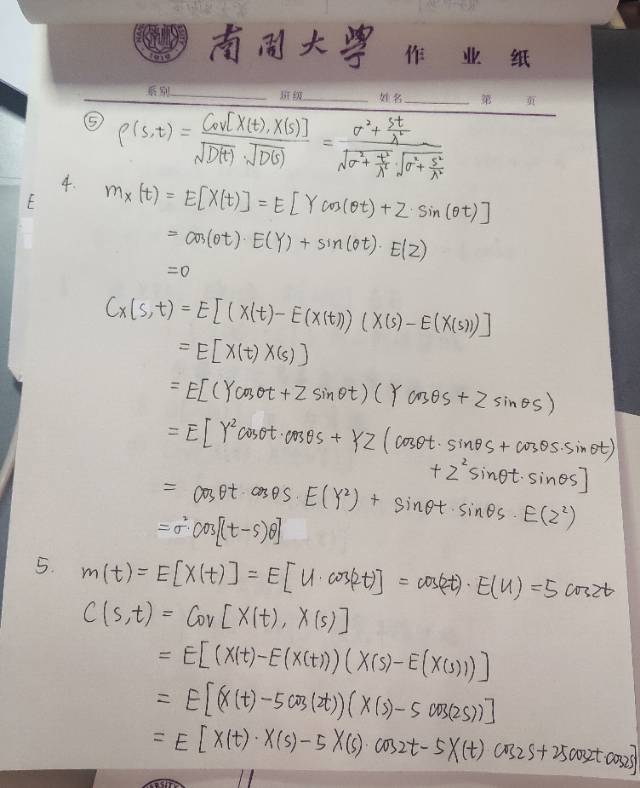 南開大學 作 业 纸
系别 班级 姓名 第 页
⑤ ρ(s,t) = Cov[X(t), X(s)] / √D(t) · √D(s) = σ² + st/λ² / √σ² + t²/λ² · √σ² + s²/λ²
4. m_X(t) = E[X(t)] = E[Y cos(θt) + Z · sin(θt)]
= cos(θt) · E(Y) + sin(θt) · E(Z)
= 0
C_X(s,t) = E[(X(t) - E(X(t))) (X(s) - E(X(s)))]
= E[X(t) X(s)]
= E[(Y cosθt + Z sinθt) (Y cosθs + Z sinθs)
= E[Y² cosθt · cosθs + YZ (cosθt · sinθs + cosθs · sinθt)
+ Z² sinθt · sinθs]
= cosθt · cosθs · E(Y²) + sinθt · sinθs · E(Z²)
= σ² cos[(t-s)θ]
5. m(t) = E[X(t)] = E[U · cos(2t)] = cos(2t) · E(U) = 5 cos2t
C(s,t) = Cov[X(t), X(s)]
= E[(X(t) - E(X(t))) (X(s) - E(X(s)))]
= E[(X(t) - 5 cos(2t)) (X(s) - 5 cos(2s))]
= E[X(t) · X(s) - 5 X(s) · cos2t - 5 X(t) cos2s + 25 cos2t · cos2s]